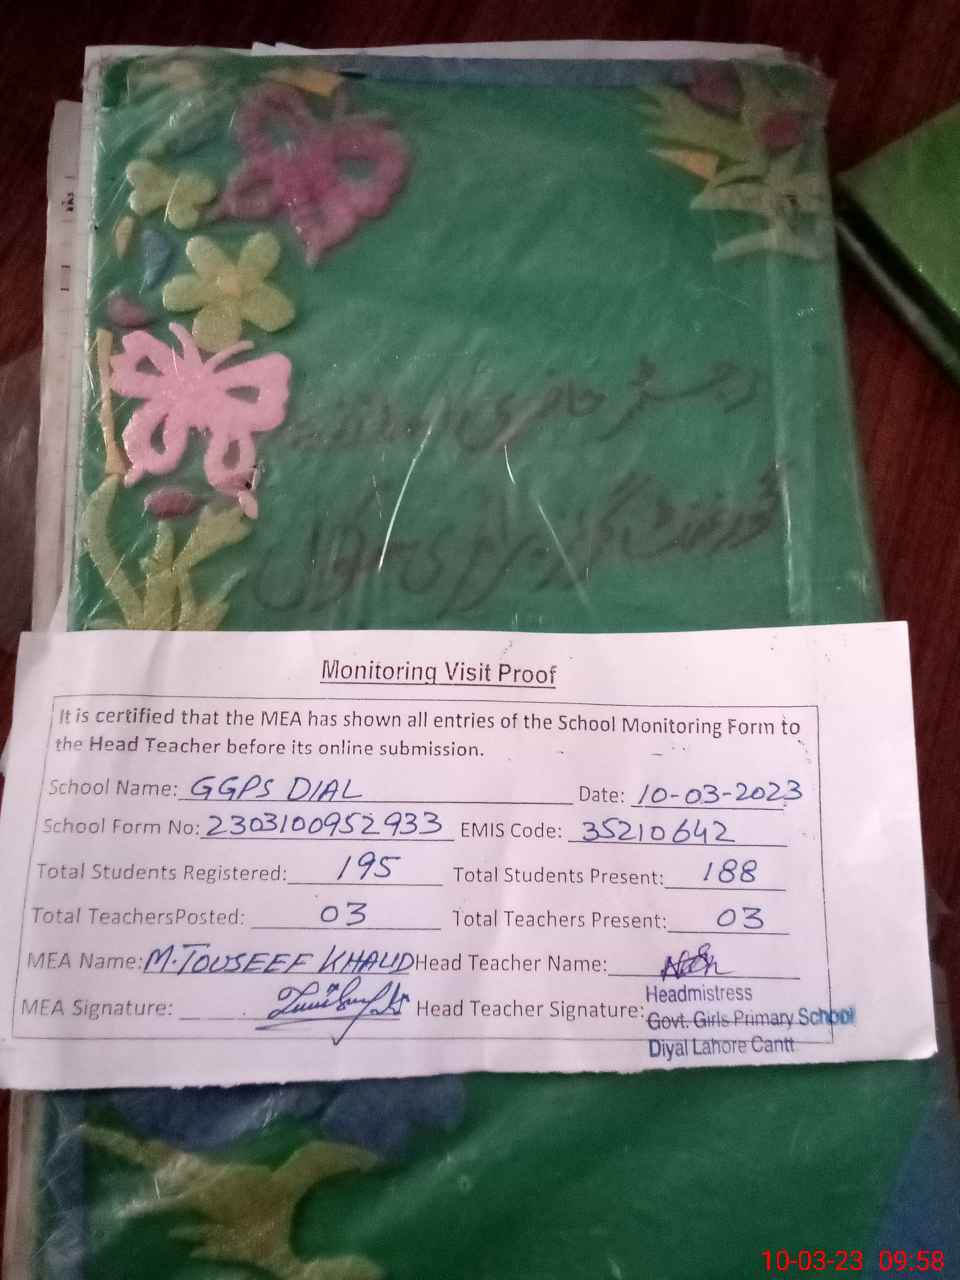 رجسٹر حاضری اساتذہ
گورنمنٹ گرلز پرائمری سکول
Monitoring Visit Proof
It is certified that the MEA has shown all entries of the School Monitoring Form to
the Head Teacher before its online submission.
School Name: GGPS DIAL Date: 10-03-2023
School Form No: 2303100952933 EMIS Code: 35210642
Total Students Registered: 195 Total Students Present: 188
Total TeachersPosted: 03 Total Teachers Present: 03
MEA Name: M. TOUSEEF KHALID Head Teacher Name:
MEA Signature: Head Teacher Signature:
Headmistress
Govt. Girls Primary School
Diyal Lahore Cantt
10-03-23 09:58